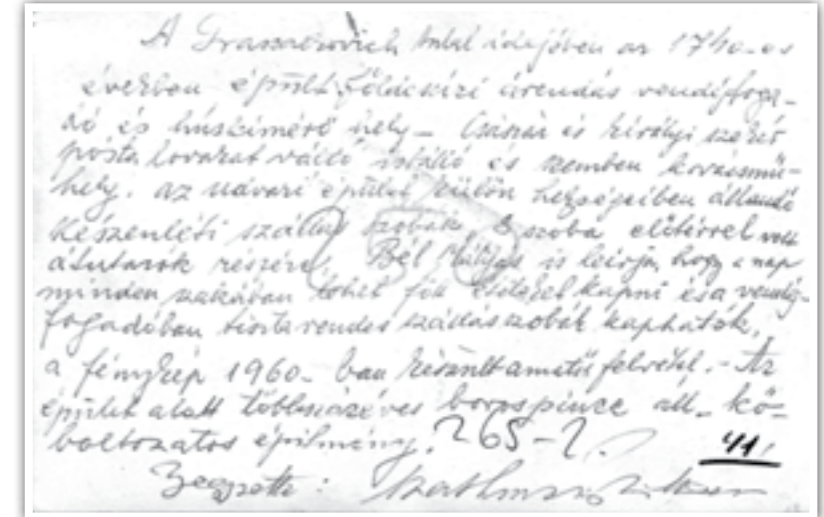 A Grassalkovich Antal idejében az 1740-es
években épült földesúri árendás vendégfoga-
dó és húskimérő hely – Császári és királyi
posta lovarat váltó istálló és szemben kovácsmű-
hely. az udvari épület külön helyiségeiben állandó
készenléti szállás szobák, szoba előtérrel volt
átutazók részére. Bél Mátyás is leírja, hogy a nap
minden szakában lehet főtt ételt kapni és a vendég-
fogadóban tiszta rendes szobák kaphatók,
a fénykép 1960-ban készült amatőr felvétel. – Az
épület alatt többszázéves borospince áll – kő-
boltozatos építmény. 265-2.
41